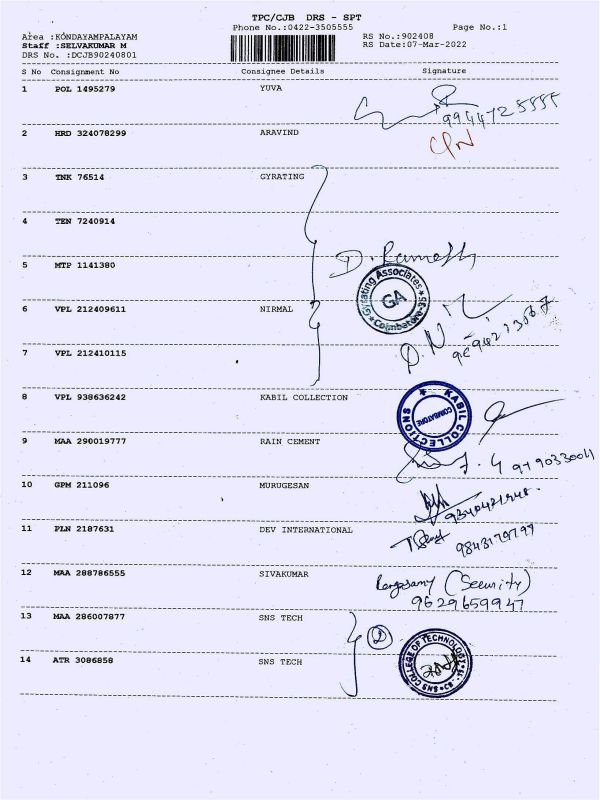 TPC/CJB DRS - SPT
Phone No.:0422-3505555 Page No.:1
Area :KONDAYAMPALAYAM RS No.:902408
Staff :SELVAKUMAR M RS Date:07-Mar-2022
DRS No. :DCJB90240801
S No Consignment No Consignee Details Signature
1 POL 1495279 YUVA
2 HRD 324078299 ARAVIND
3 TNK 76514 GYRATING
4 TEN 7240914
D. Ramesh
5 MTP 1141380
Gyrating Associates GA Coimbatore-35
6 VPL 212409611 NIRMAL
7 VPL 212410115
8 VPL 938636242 KABIL COLLECTION
KABIL COLLECTIONS COIMBATORE
9 MAA 290019777 RAIN CEMENT
10 GPM 211096 MURUGESAN
11 PLN 2187631 DEV INTERNATIONAL
12 MAA 288786555 SIVAKUMAR (Security)
9629659947
13 MAA 286007877 SNS TECH
2
14 ATR 3086858 SNS TECH
SNS COLLEGE OF TECHNOLOGY